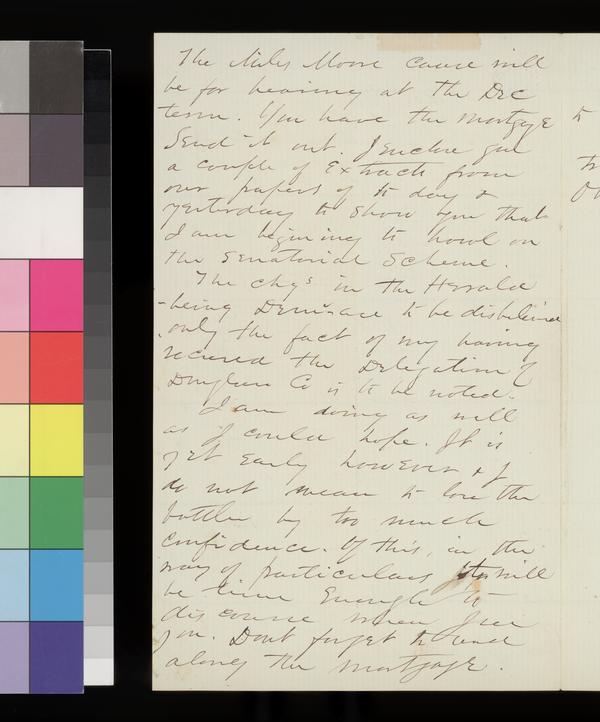 The Miles Moore cause will
be for hearing at the Dec
term. You have the mortgage
Send it out. I enclose you
a couple of Extracts from
our papers of to day &
yesterday to show you that
I am begining to howl on
the Senatorial Scheme.
The chgs in the Herald
being are to be disbelieved
only the fact of my having
secured the Delegation of
Douglas Co is to be noted.
I am doing as well
as I could hope. It is
yet Early however & I
do not mean to lose the
battle by too much
confidence. Of this, in the
way of particulars will
be time Enough to
discourse when I see
you. Dont forget to send
along the mortgage.
to